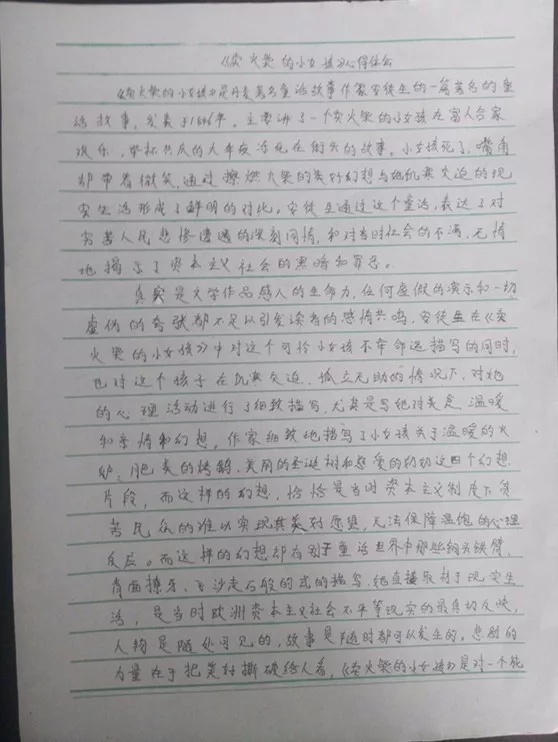 《卖火柴的小女孩》心得体会
《卖火柴的小女孩》是丹麦著名童话故事作家安徒生的一篇著名的童
话故事，发表于1846年，主要讲了一个卖火柴的小女孩在富人合家
欢乐，举杯共庆的大年夜冻死在街头的故事。小女孩死了，嘴角
却带着微笑，通过擦燃火柴的美好幻想与她饥寒交迫的现
实生活形成了鲜明的对比。安徒生通过这个童话，表达了对
穷苦人民悲惨遭遇的深刻同情，和对当时社会的不满，无情
地揭示了资本主义社会的黑暗和罪恶。
真实是文学作品感人的生命力，任何虚假的演示和一切
虚伪的夸张都不足以引发读者的感情共鸣，安徒生在《卖
火柴的小女孩》中对这个可怜小女孩不幸命运描写的同时，
也对这个孩子在饥寒交迫、孤立无助的情况下，对她
的心理活动进行了细致描写，尤其是写她对美是温暖
和亲情和幻想，作家细致地描写了小女孩关于温暖的火
炉、肥美的烤鹅、美丽的圣诞树和慈爱的奶奶这四个幻想
片段，而这样的幻想，恰恰是当时资本主义制度下贫
苦民众的难以实现其美好愿望，无法保障温饱的心理
反应。而这样的幻想却有别于童话世界中那些铜头铁臂，
青面獠牙、飞沙走石般的式的描写，她直接取材于现实生
活，是当时欧洲资本主义社会不平等现实的最真切反映，
人物是随处可见的，故事是随时都可以发生的。悲剧的
力量在于把美好撕破给人看，《卖火柴的小女孩》是对一个能